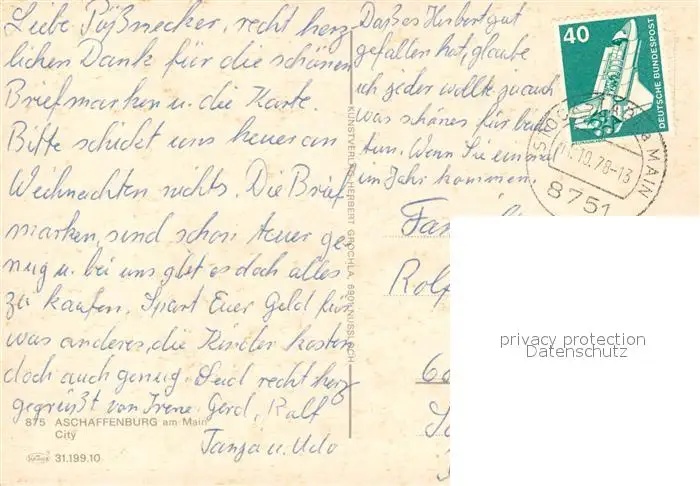 Liebe Pößnecker, recht herz
lichen Dank für die schönen
Briefmarken u. die Karte.
Bitte schickt uns heuer an
Weihnachten nichts. Die Brief
marken, sind schon teuer ge
nug u. bei uns gibt es doch alles
zu kaufen. Spart Euer Geld für
was anderes, die Kinder kosten
doch auch genug. Seid recht herz
gegrüßt von Irene, Gerd, Ralf
Tanja u. Udo
875 ASCHAFFENBURG am Main
City
Krüger 31.199.10
KUNSTVERLAG HERBERT GROCHLA, 6901 NUSSLOCH
Daß es Herbert gut
gefallen hat, glaube
ich jeder wollte ja auch
was schönes für
tun. Wenn Sie einmal
im Jahr kommen.
40
DEUTSCHE BUNDESPOST
MAIN
10.78-13
8751
Fam
Rolf
60
privacy protection
Datenschutz